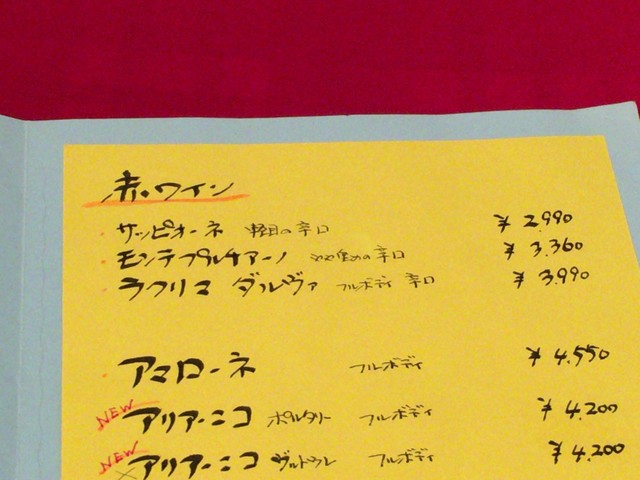 赤ワイン
サッピオーネ 軽目の辛口 ¥2.990
モンテプルチアーノ やや重めの辛口 ¥3.360
ラクリマ ダルヴァ フルボディ 辛口 ¥3.990
アマローネ フルボディ ¥4.550
NEW アリアーニコ ポルタリー フルボディ ¥4.200
NEW アリアーニコ ヴルトゥレ フルボディ ¥4.200